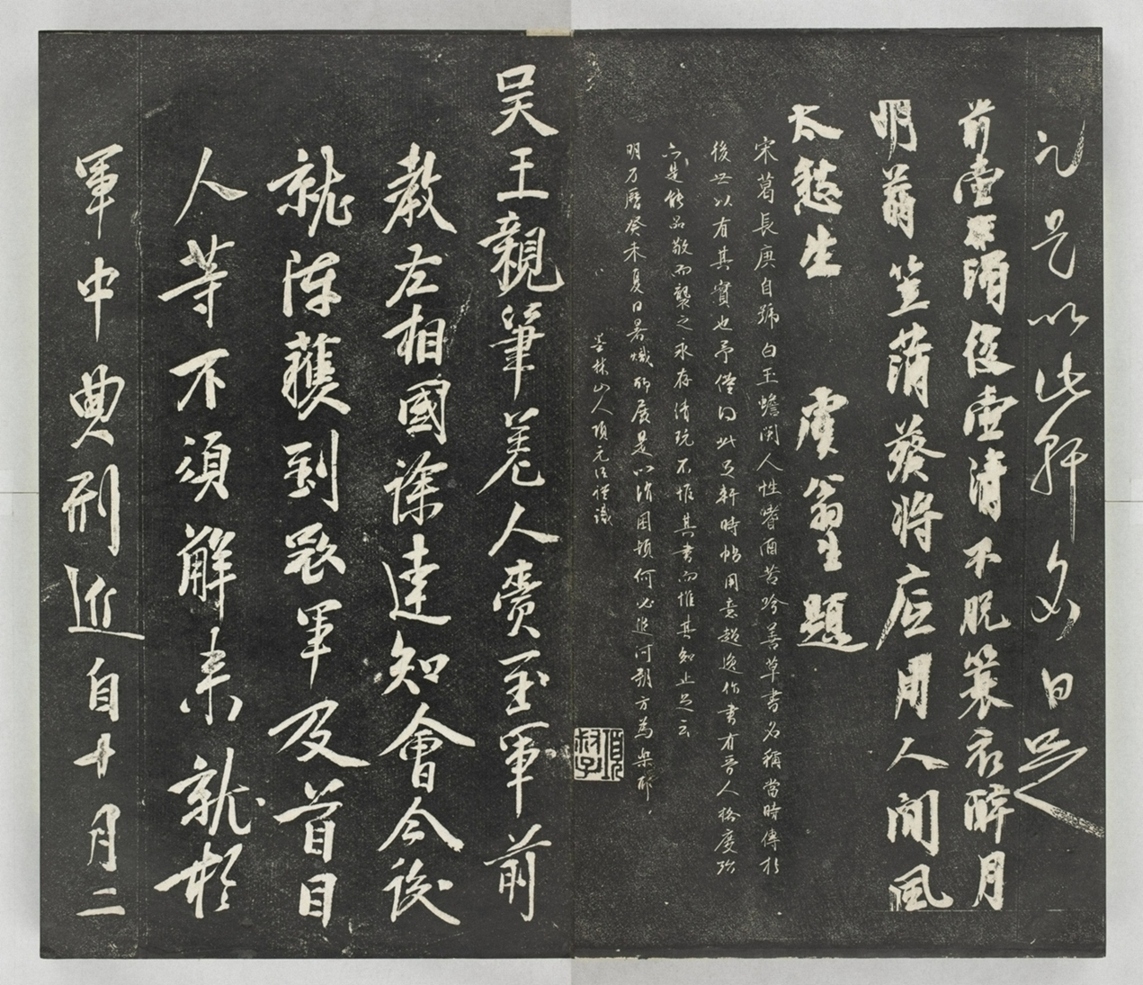 元是以此軒多日足
前壺酒後壺清不脫蓑衣醉月
明蒻笠蒲葵將底用人間風
太愁生 虞翁生題
宋葛長庚自號白玉蟾閩人性嗜酒苦吟善草書名稱當時傳於
後世以有其實也予僅得此足軒時帖用意超逸作書有晉人格度殆
亦是能品敬而襲之永存清玩不惟其書而惟其知止足云
明万曆癸未夏日暑熾所展是以消困頓何必追河朔方為樂耶
墨林山人項元汴謹識
項叔子
吳王親筆差人賫至軍前
教左相國徐達知會今後
就陣獲到寇軍及首目
人等不須解來就於
軍中典刑近自十月二